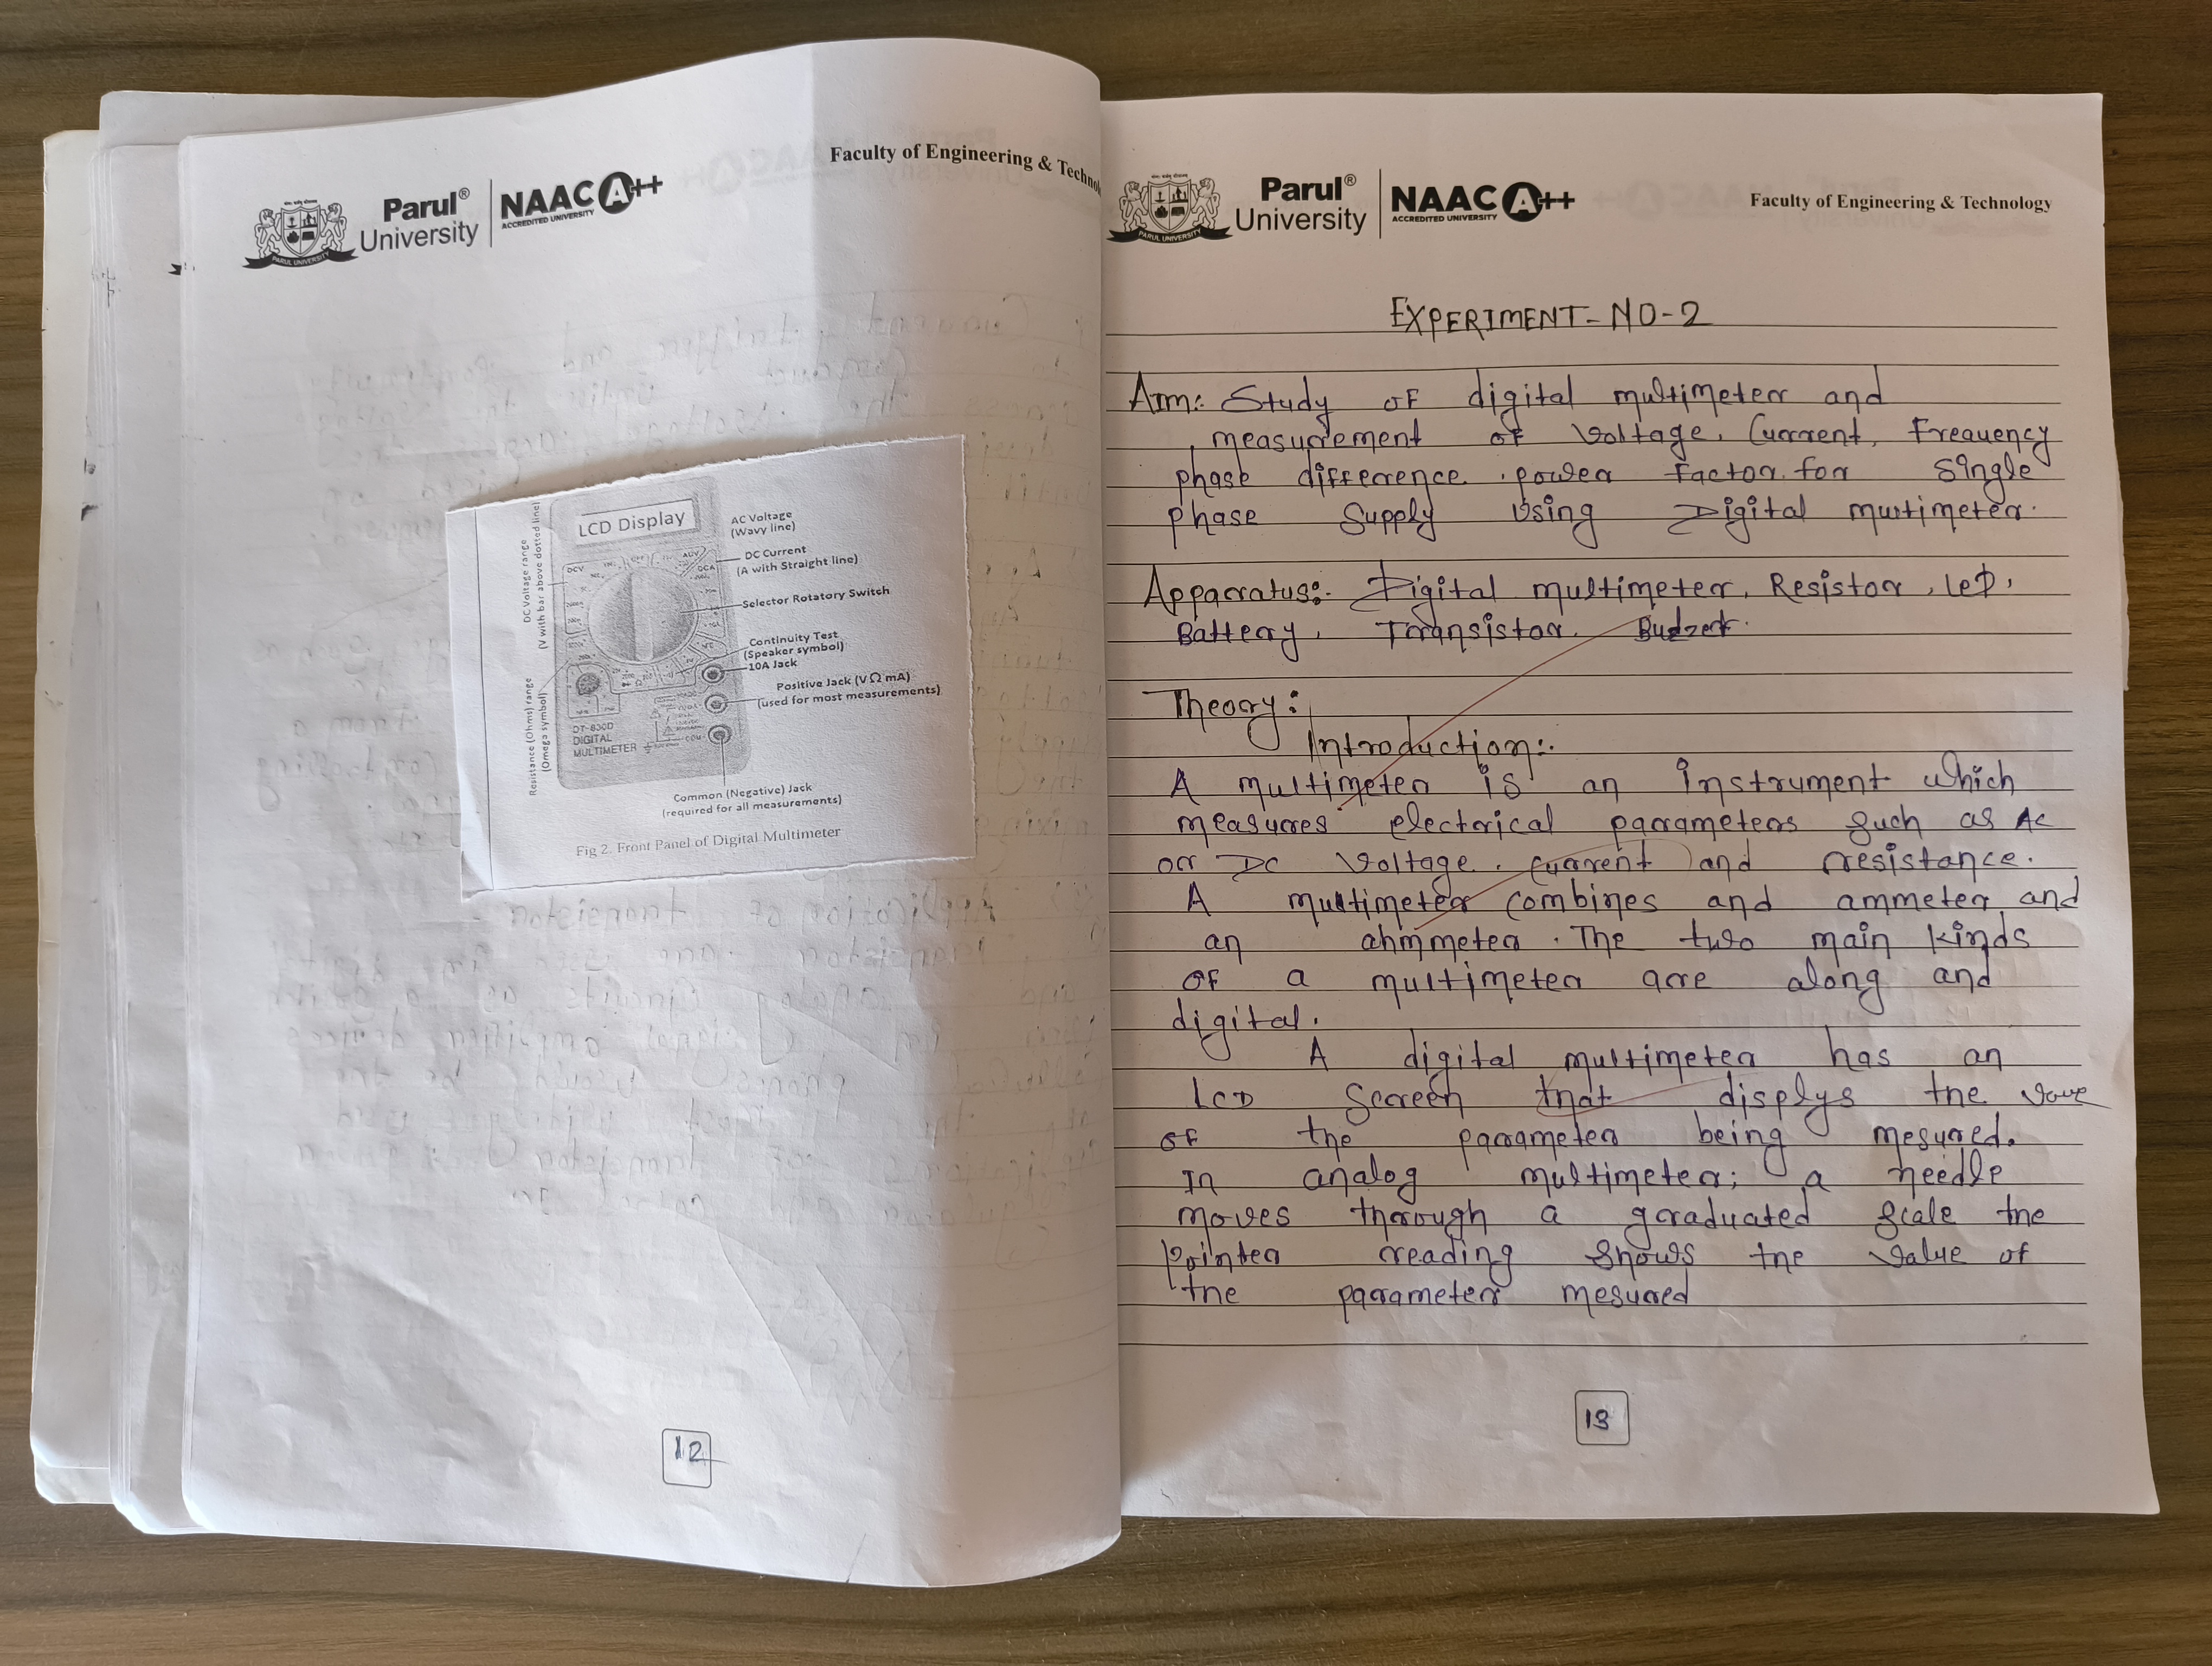 Parul®
University
NAAC A++
ACCREDITED UNIVERSITY
PARUL UNIVERSITY
Faculty of Engineering & Technolo
LCD Display
AC Voltage
(Wavy line)
DC Current
(A with Straight line)
Selector Rotatory Switch
Continuity Test
(Speaker symbol)
10A Jack
Positive Jack (VΩmA)
(used for most measurements)
DC Voltage range
(V with bar above dotted line)
Resistance (Ohms) range
(Omega symbol)
DCV
ACV
DCA
DT-830D
DIGITAL
MULTIMETER
COM
Common (Negative) Jack
(required for all measurements)
Fig 2. Front Panel of Digital Multimeter
12
Parul®
University
NAAC A++
ACCREDITED UNIVERSITY
PARUL UNIVERSITY
Faculty of Engineering & Technology
EXPERIMENT-NO-2
Aim: Study of digital multimeter and
measurement of Voltage, Current, Freauency
phase difference, power factor for Single
phase Supply Using Digital multimeter.
Apparatus:- Digital multimeter, Resistor, LED,
Battery, Transistor.
Theory:
Introduction:-
A multimeter is an instrument which
measures electrical parameters such as AC
or DC Voltage, current and resistance.
A multimeter combines and ammeter and
an ahmmeter. The two main kinds
of a multimeter are along and
digital.
A digital multimeter has an
LCD Screen that displys the
of the parameter being mesured.
In analog multimeter; a needle
moves through a graduated scale the
Pointer reading shows the value of
the parameter mesured
13